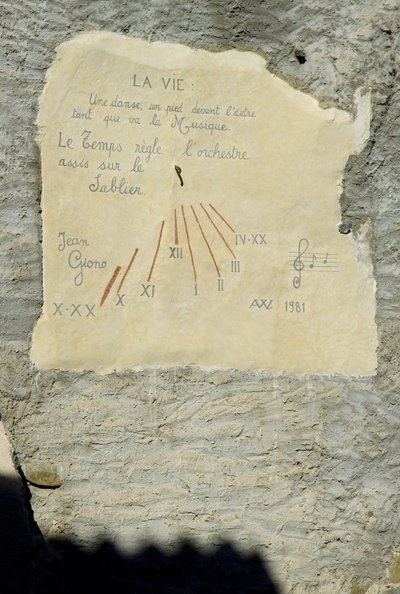 LA VIE :
Une danse, un pied devant l'autre
tant que va la Musique.
Le Temps règle l'orchestre
assis sur le
Sablier.
Jean
Giono
X·XX
X
XI
XII
I
II
III
IV·XX
1981